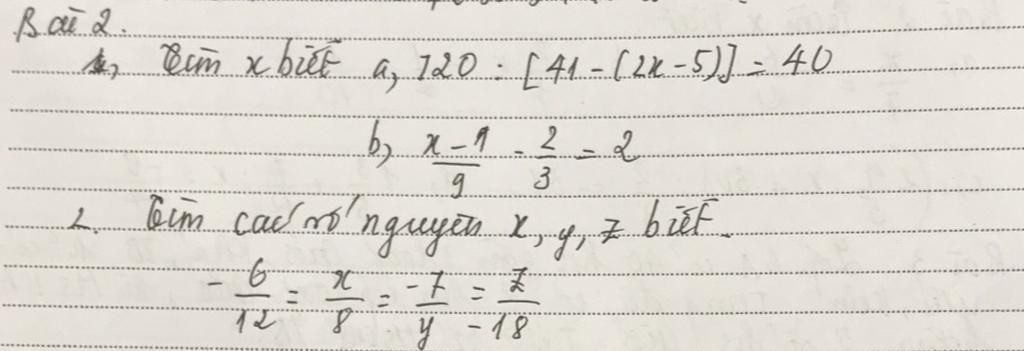 Bài 2.
1, Tìm x biết a, 720 : [41 - (2x - 5)] = 40
b, x - 1 / 9 - 2 / 3 = 2
2. Tìm các số nguyên x, y, z biết.
- 6 / 12 = x / 8 = -7 / y = z / -18